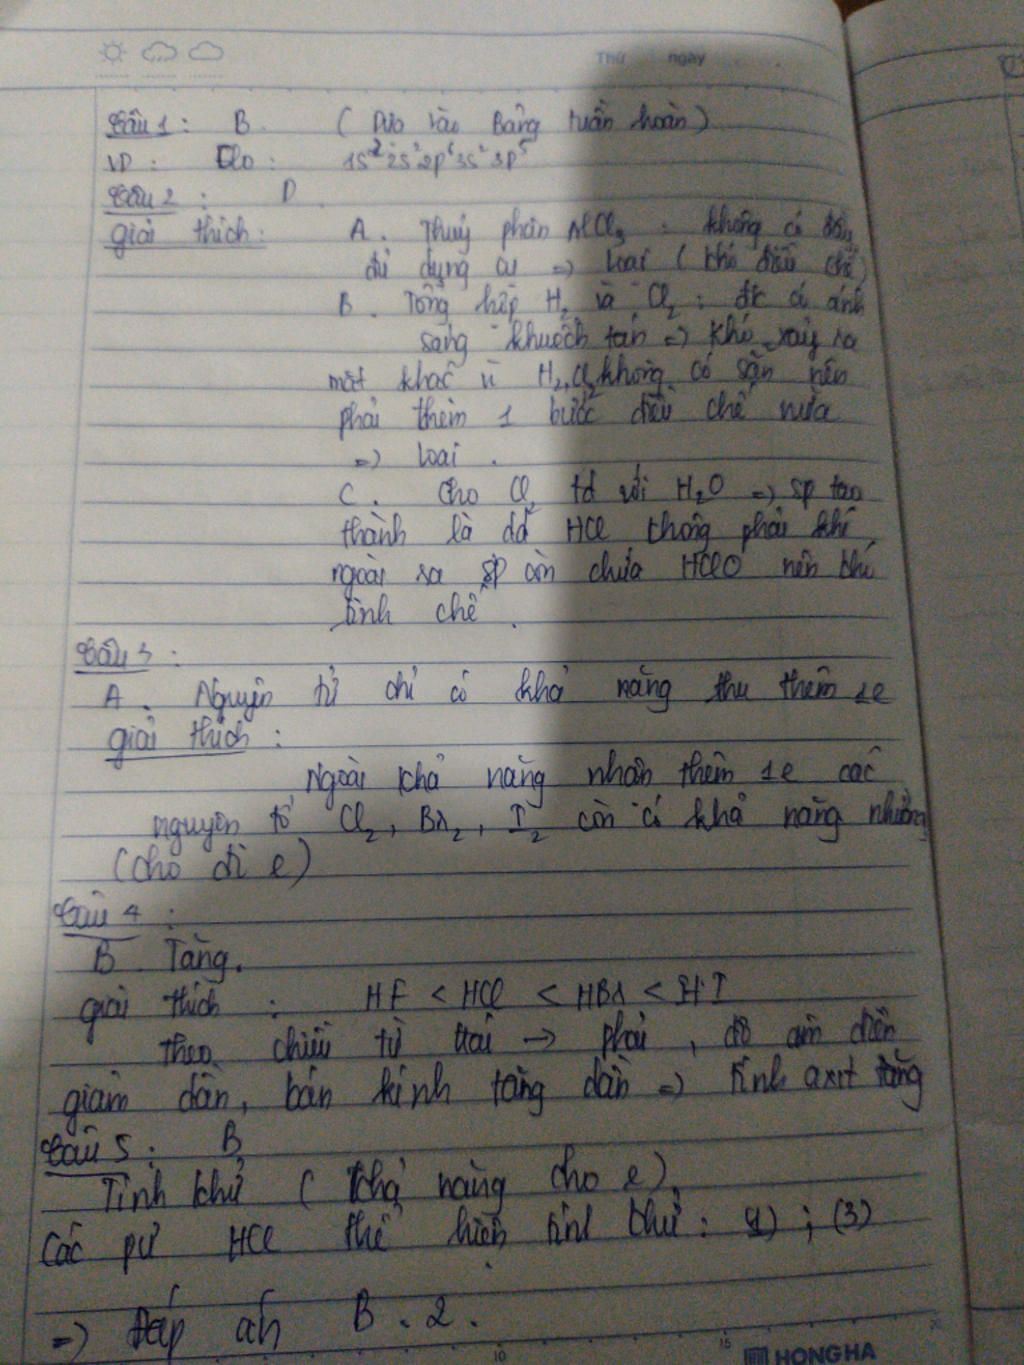 Thứ ngày
Câu 1: B. (Dựa vào Bảng tuần hoàn)
VD: Clo: 1s² 2s² 2p⁶ 3s² 3p⁵
Câu 2: D.
giải thích: A. Thuỷ phân AlCl₃: không có đầy
đủ dụng cụ => loại (khó điều chế)
B. Tổng hợp H₂ và Cl₂: đk có ánh
sáng khuếch tán => khó xảy ra
mặt khác vì H₂, Cl₂ không có sẵn nên
phải thêm 1 bước điều chế nữa
=> loại.
C. Cho Cl₂ td với H₂O => sp tạo
thành là dd HCl không phải khí
ngoài ra sp còn chứa HClO nên khó
tinh chế.
Câu 3:
A. Nguyên tử chỉ có khả năng thu thêm 1e
giải thích:
Ngoài khả năng nhận thêm 1e các
nguyên tố Cl₂, Br₂, I₂ còn có khả năng nhường
(cho đi e)
Câu 4:
B. Tăng.
giải thích: HF < HCl < HBr < HI
theo chiều từ trái → phải, độ âm điện
giảm dần, bán kính tăng dần => tính axit tăng
Câu 5: B
Tính khử (khả năng cho e).
Các pư HCl thể hiện tính khử: (1); (3)
=> Đáp án B. 2.
10 15 20
HONG HA